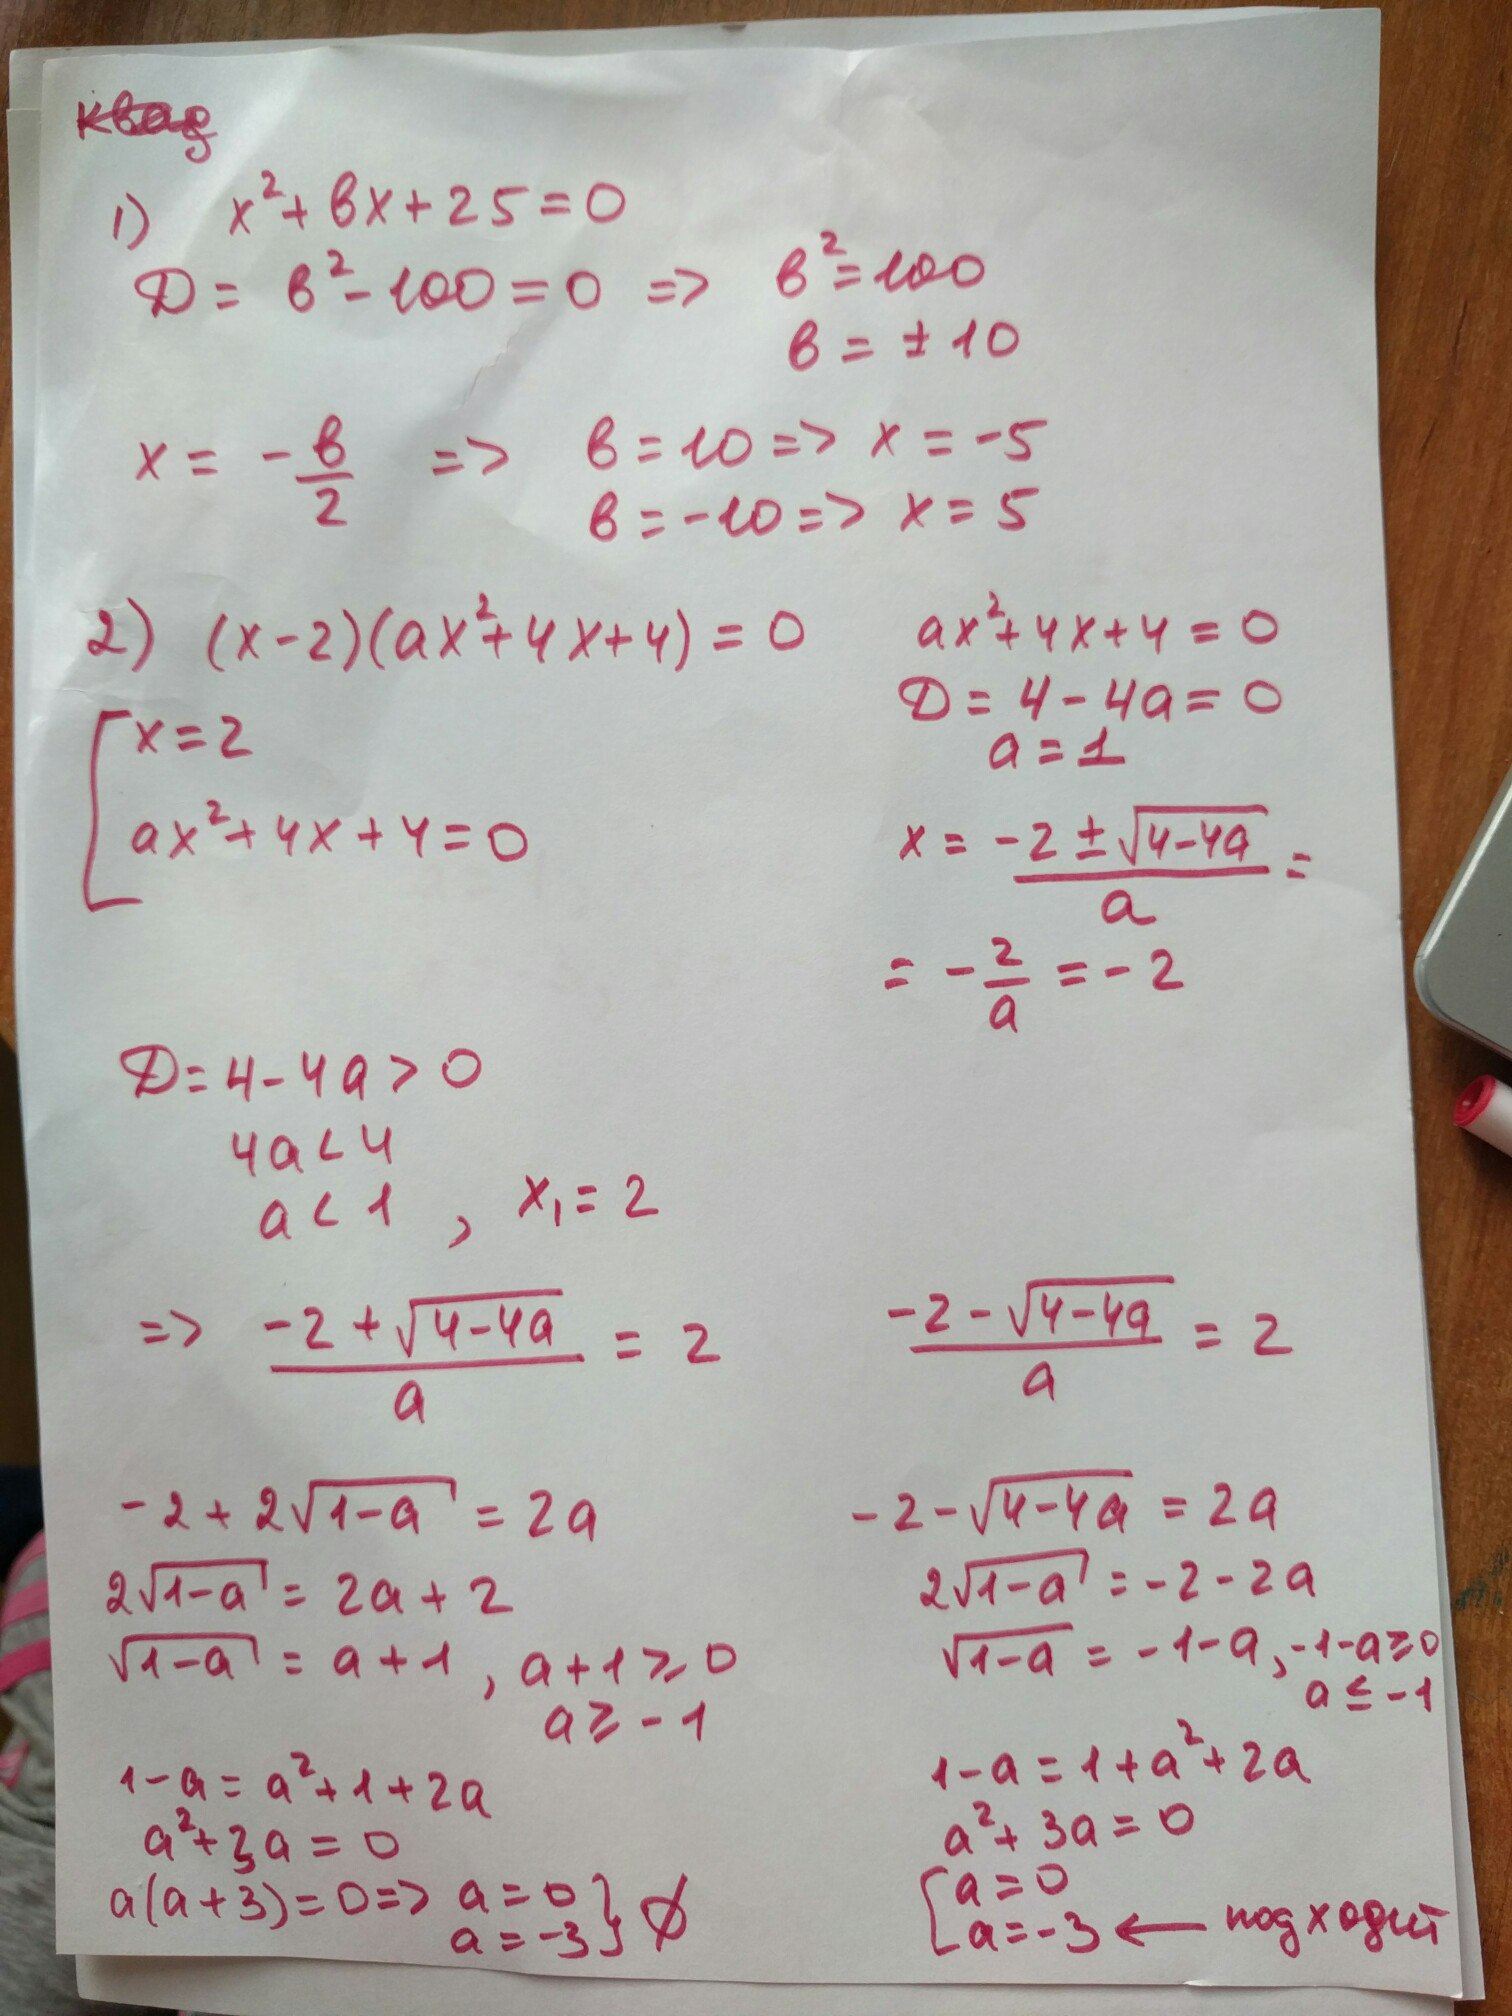 квад
1) x²+bx+25=0
D = b²-100=0 => b²=100
b = ±10
x = -b/2 => b=10=> x=-5
b=-10=> x=5
2) (x-2)(ax²+4x+4)=0
[x=2
ax²+4x+4=0
ax²+4x+4=0
D=4-4a=0
a=1
x = (-2±√(4-4a))/a =
= -2/a = -2
D=4-4a>0
4a<4
a<1 , x₁=2
=> (-2+√(4-4a))/a = 2
-2+2√(1-a) = 2a
2√(1-a) = 2a+2
√(1-a) = a+1 , a+1≥0
a≥-1
1-a=a²+1+2a
a²+3a=0
a(a+3)=0=> a=0
a=-3} ∅
(-2-√(4-4a))/a = 2
-2-√(4-4a) = 2a
2√(1-a) = -2-2a
√(1-a) = -1-a, -1-a≥0
a≤-1
1-a=1+a²+2a
a²+3a=0
[a=0
a=-3 ← подходит